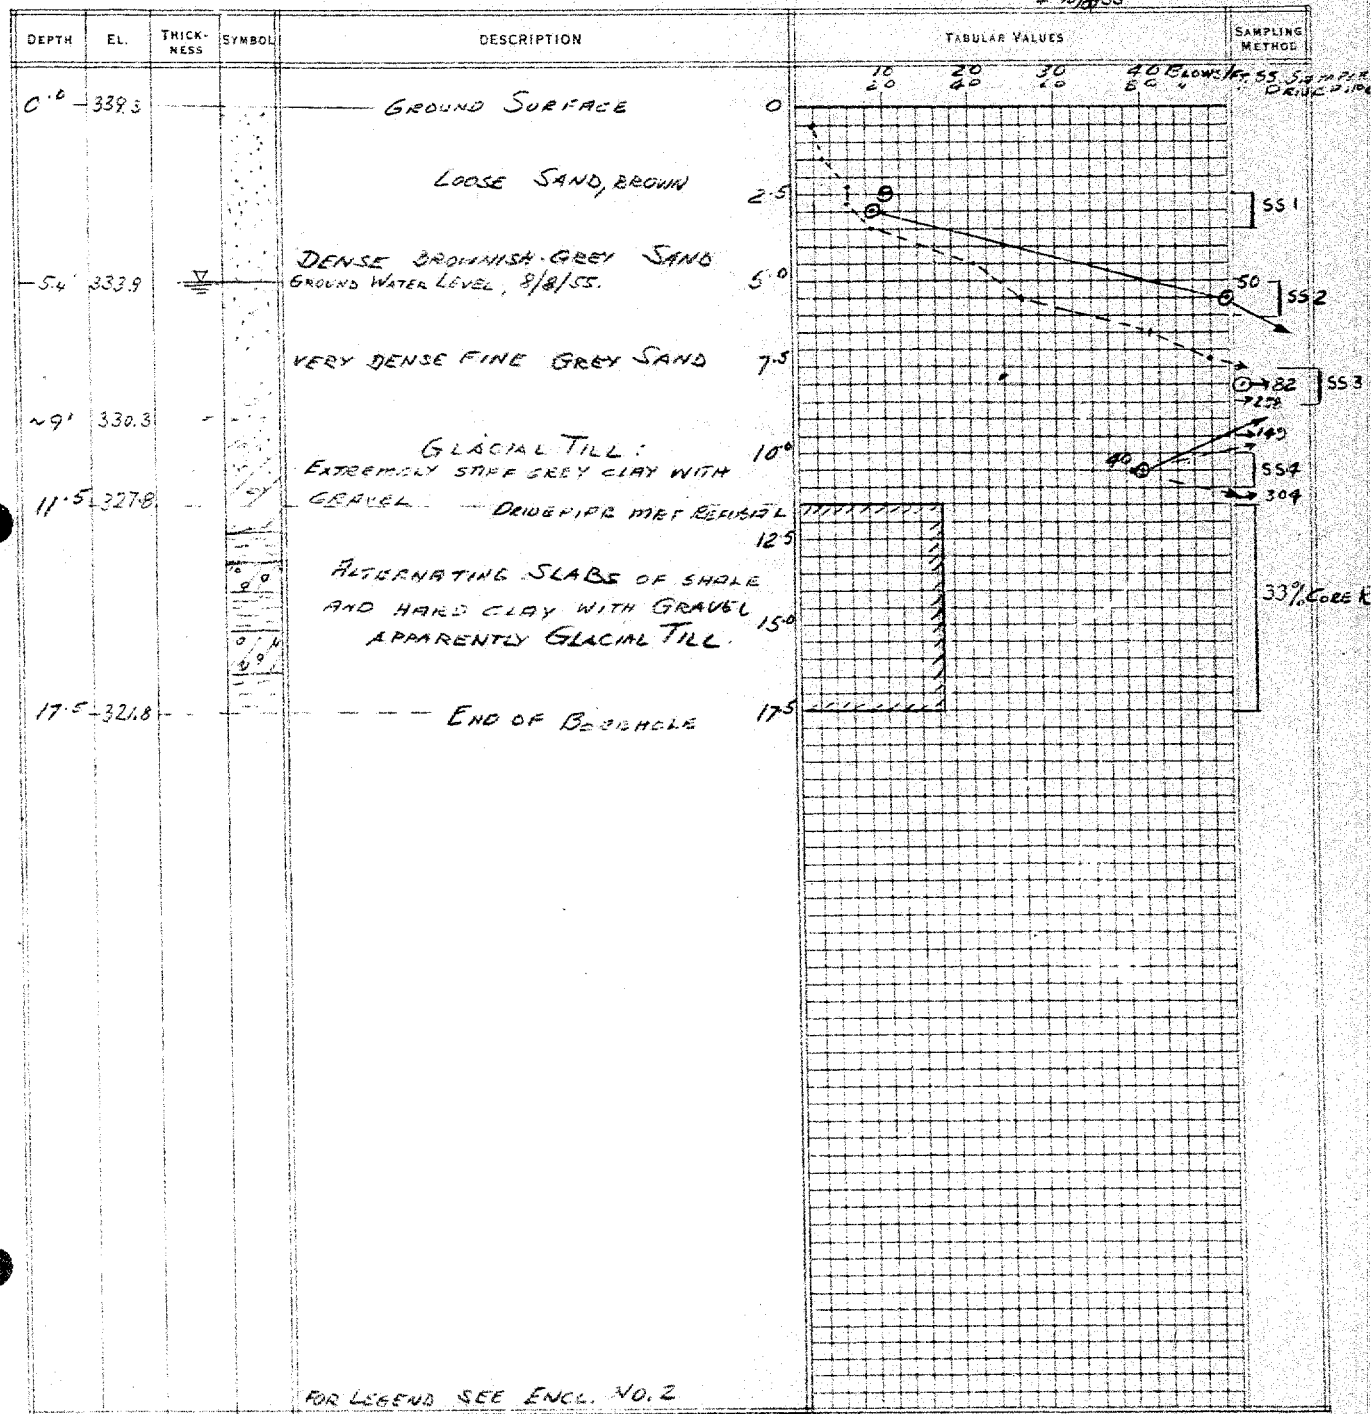 DEPTH EL. THICK-NESS SYMBOL DESCRIPTION TABULAR VALUES SAMPLING METHOD
10 20 30 40 BLOWS/FT SS. SAMPLER
20 40 60 80 " DRIVEPIPE
0.0 339.3 GROUND SURFACE 0
LOOSE SAND, BROWN 2.5 SS 1
DENSE BROWNISH-GREY SAND
5.4' 333.9 GROUND WATER LEVEL, 8/8/55. 5.0 50 SS 2
VERY DENSE FINE GREY SAND 7.5
82 SS 3
~9' 330.3
GLACIAL TILL: 10.0 149
EXTREMELY STIFF GREY CLAY WITH 40 SS4
GRAVEL 304
11.5 327.8 DRIVEPIPE MET REFUSAL
12.5
ALTERNATING SLABS OF SHALE
AND HARD CLAY WITH GRAVEL 33% CORE R
15.0
APPARENTLY GLACIAL TILL.
17.5 321.8 END OF BOREHOLE 17.5
FOR LEGEND SEE ENCL. NO. 2